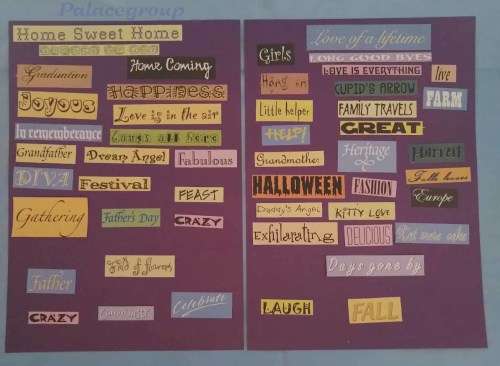 Palacegroup
Home Sweet Home
Graduation
Home Coming
Joyous
HAPPINESS
Love is in the air
In rememberance
Grandfather
Dream Angel
Fabulous
DIVA
Festival
FEAST
Gathering
Father's Day
CRAZY
Father
Celebrate
CRAZY
Girls
Love of a lifetime
LONG GOOD BYES
LOVE IS EVERYTHING
live
Hang on
CUPID'S ARROW
FARM
Little helper
FAMILY TRAVELS
HELP!
GREAT
Grandmother
Heritage
Harvest
HALLOWEEN
FASHION
Europe
Daddy's Angel
KITTY LOVE
Exhilarating
DELICIOUS
Days gone by
LAUGH
FALL